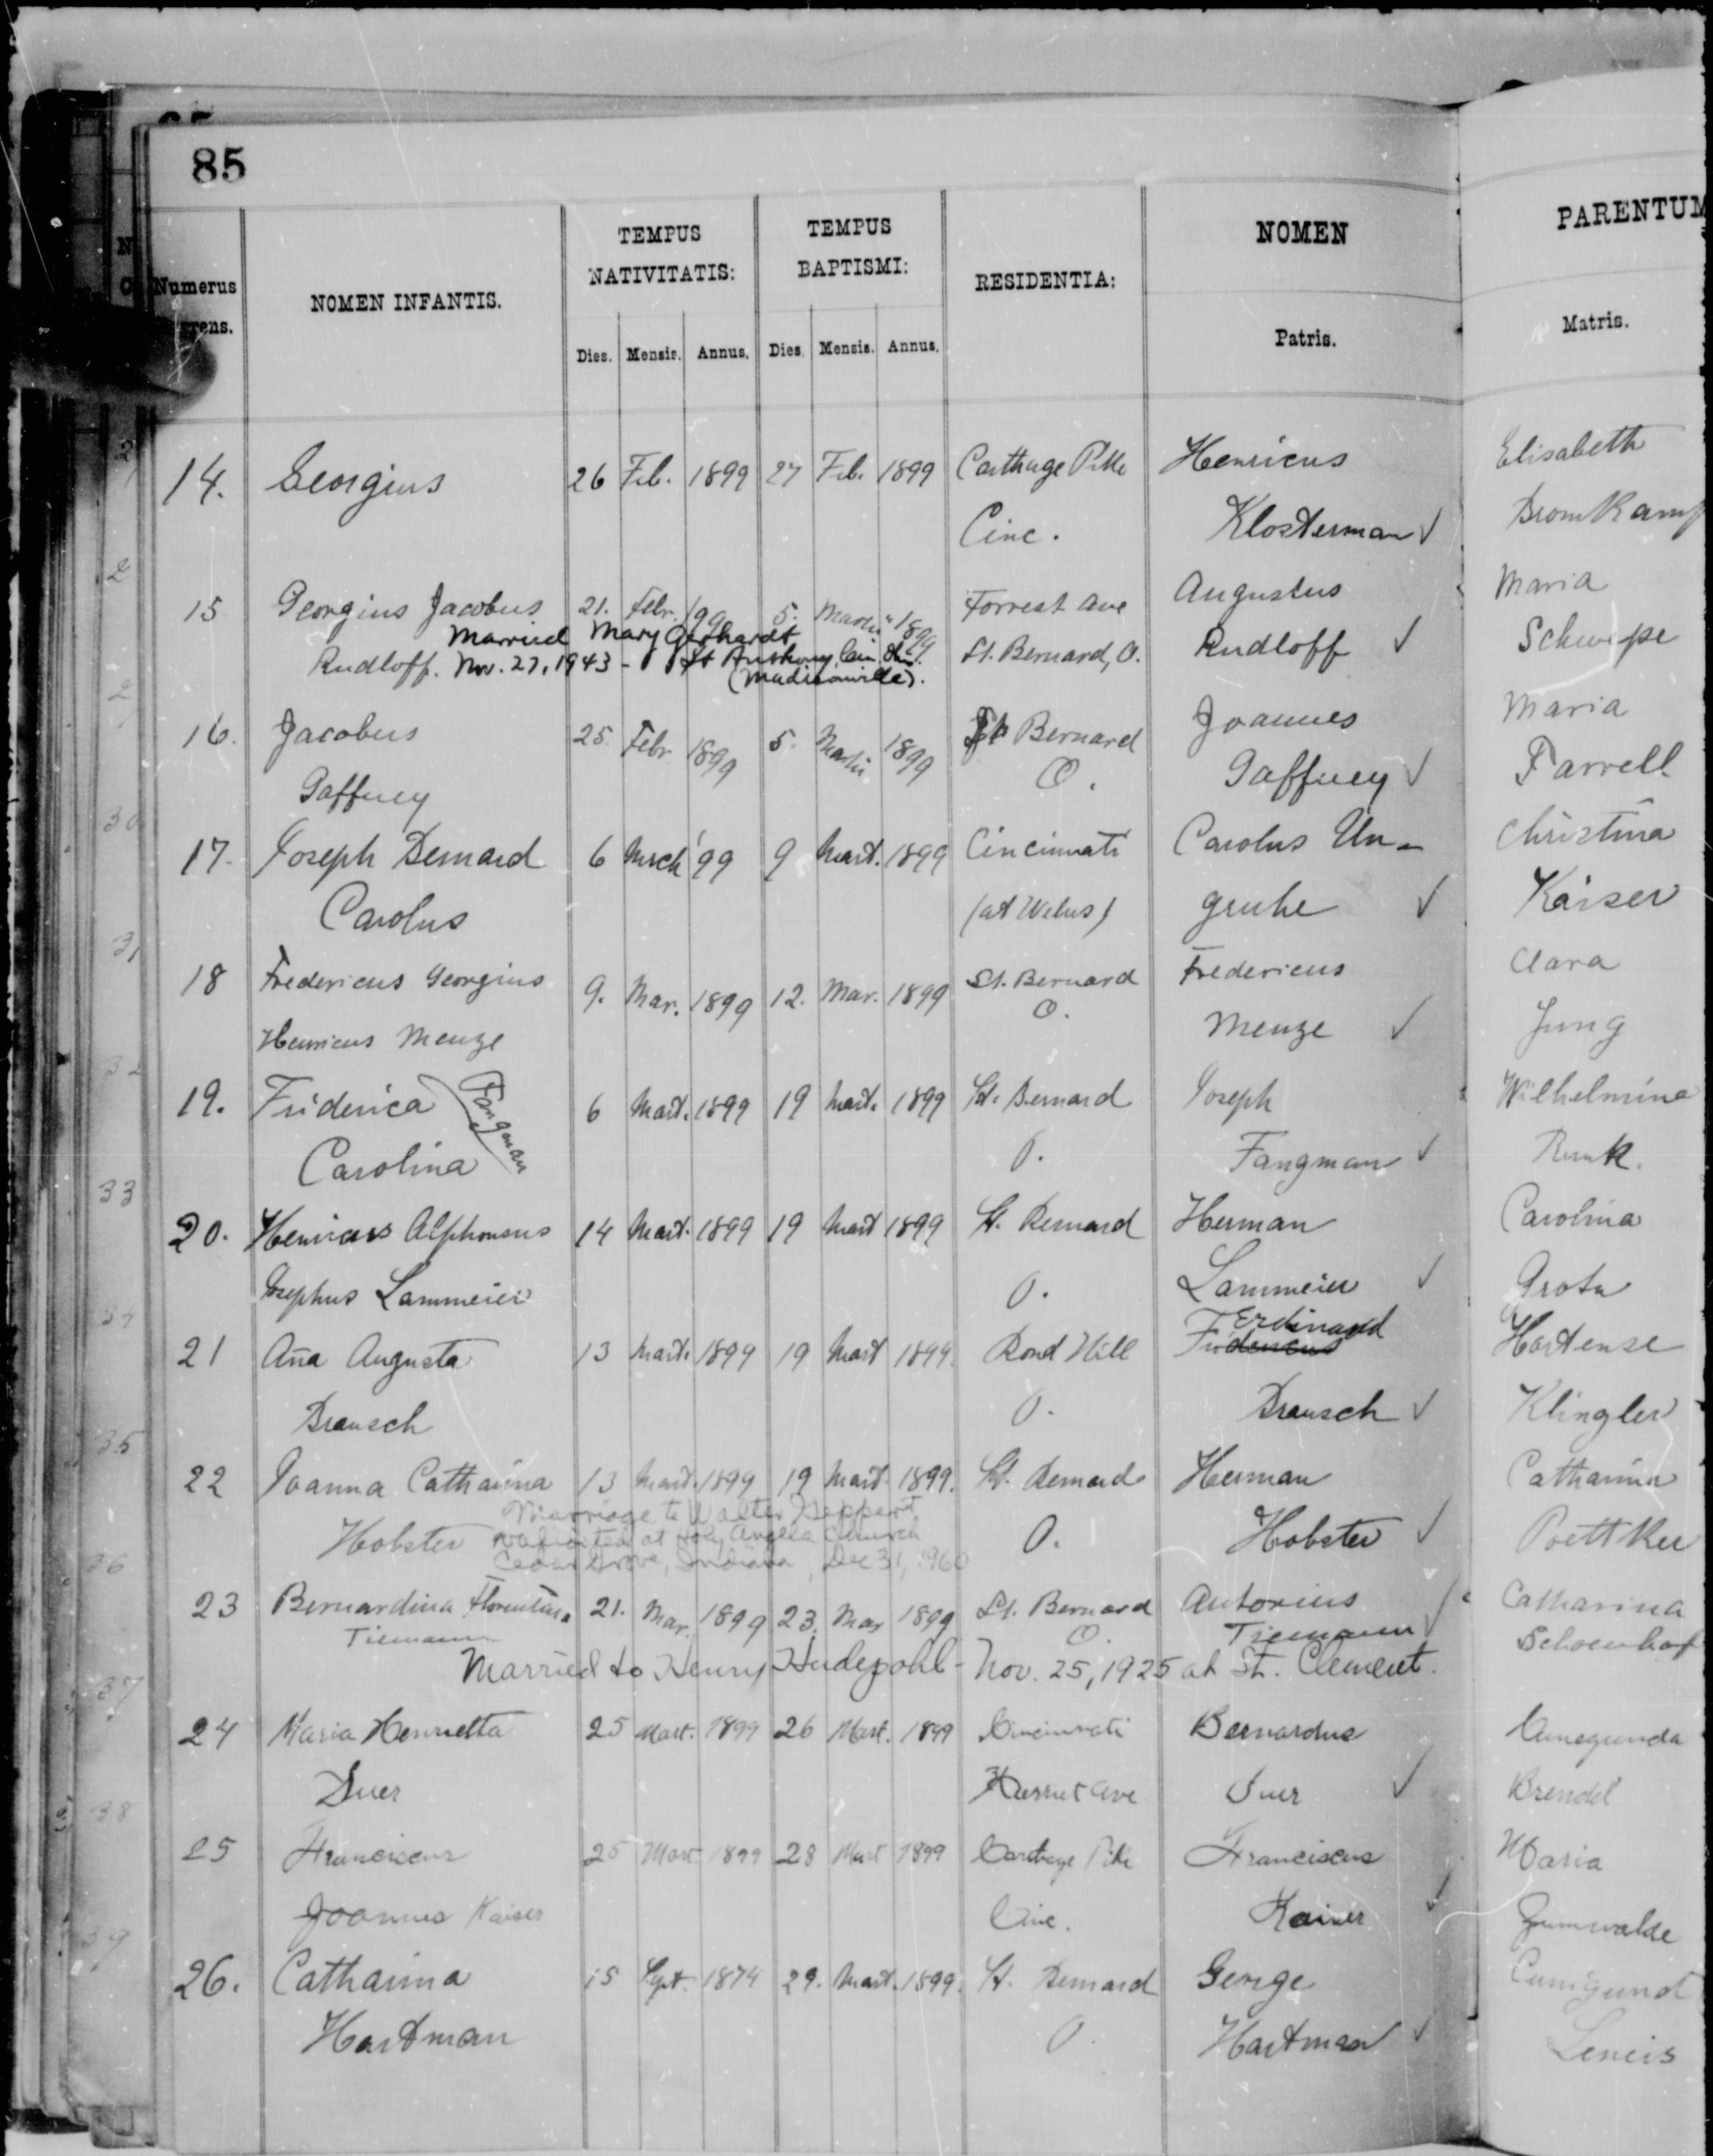 85
TEMPUS NATIVITATIS: TEMPUS BAPTISMI: NOMEN PARENTUM
Numerus NOMEN INFANTIS. RESIDENTIA: Patris. Matris.
Dies. Mensis. Annus. Dies. Mensis. Annus.
14. Georgius 26 Feb. 1899 27 Feb. 1899 Carthage Pike Henricus Elisabeth
Cinc. Klosterman ✓ Bromkamp
15 Georgius Jacobus 21. Febr. '99 5. Martii 1899 Forrest Ave Augustus Maria
Married Mary Gerhardt
Rudloff. Nov. 27, 1943 - St Anthony, Cin. Ohio. St. Bernard, O. Rudloff ✓ Schwepe
(Madisonville).
16. Jacobus 25 Febr 1899 5. Martii 1899 St Bernard Joannes Maria
Gaffney O. Gaffney ✓ Farrell
17. Joseph Bernard 6 March '99 9 Mart. 1899 Cincinnati Carolus Un- Christina
Carolus gruhe ✓ Kaiser
18 Fredericus Georgius 9. Mar. 1899 12. Mar. 1899 St. Bernard Fredericus Clara
Henricus Menze O. Menze ✓ Jung
19. Friderica Fangman 6 Mart. 1899 19 Mart. 1899 St. Bernard Joseph Wilhelmina
Carolina O. Fangman ✓
20. Henricus Alphonsus 14 Mart. 1899 19 Mart 1899 St. Bernard Herman Carolina
Josephus Lammeier O. Lammeier ✓
Ferdinand
21 Aña Augusta 13 Mart. 1899 19 Mart 1899. Bond Hill Fridericus Hortense
Brausch O. Brausch ✓ Klingler
22 Joanna Catharina 13 Mart. 1899 19 Mart. 1899. St. Bernard Herman Catharina
Marriage to Walter Geppert
Hobster validated at Holy Angels Church O. Hobster ✓ Poettker
Cedar Grove, Indiana, Dec 31, 1960
23 Bernardina Florentina 21. Mar. 1899 23. Mar 1899 St. Bernard Antonius ✓ Catharina
Tiemann O. Tiemann Schoenhof
Married to Henry Hudepohl - Nov. 25, 1925 at St. Clement.
24 Maria Henrietta 25 Mart. 1899 26 Mart. 1899 Cincinnati Bernardus Cunegunda
Duer Ave Duer ✓ Brendel
25 Franciscus 25 Mart. 1899 28 Mart 1899 Carthage Pike Franciscus Maria
Joannes Kaiser Cinc. Kaiser ✓ Grunwalde
26. Catharina 15 Sept. 1874 29. Mart. 1899. St. Bernard George Cunigund
Hartman O. Hartman ✓